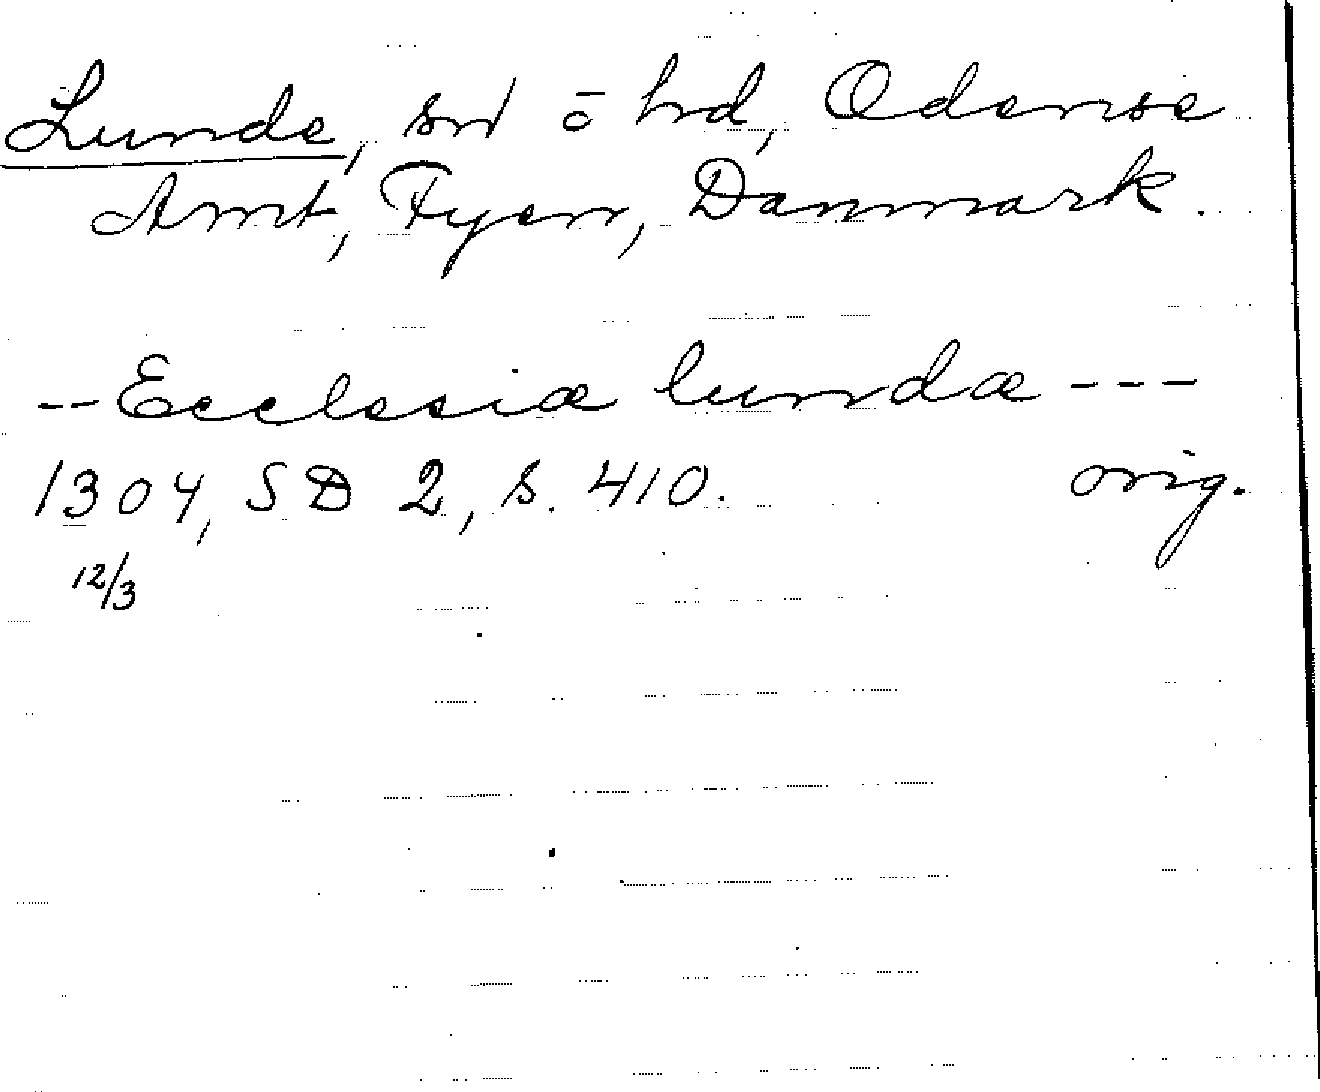 Lunde, sn ō hd, Odense
Amt, Fyen, Danmark.
-- Ecclesiæ lundæ ---
1304, SD 2, s. 410. orig.
12/3